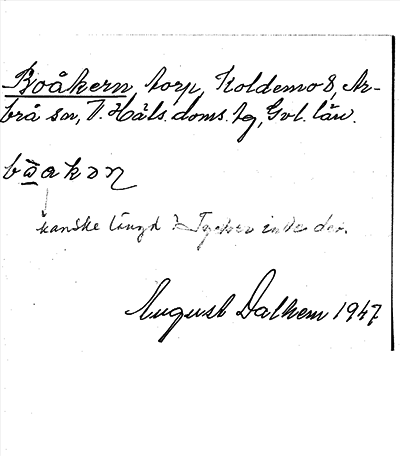 Boåkern, torp, Koldemo 8, Ar-
brå sn, V. Häls. doms. tg, Gvl. län.
bòakəɲ
kanske längd? Tycker inte det.
August Dalhem 1947